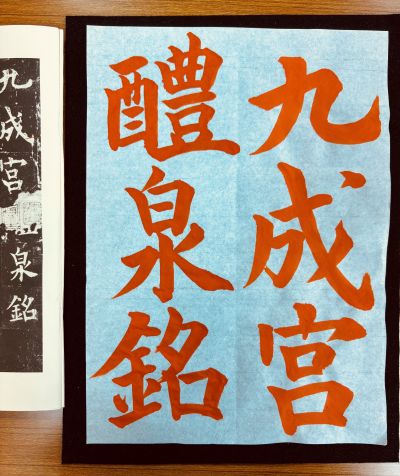 九成宮
醴泉銘
九成宮
泉銘